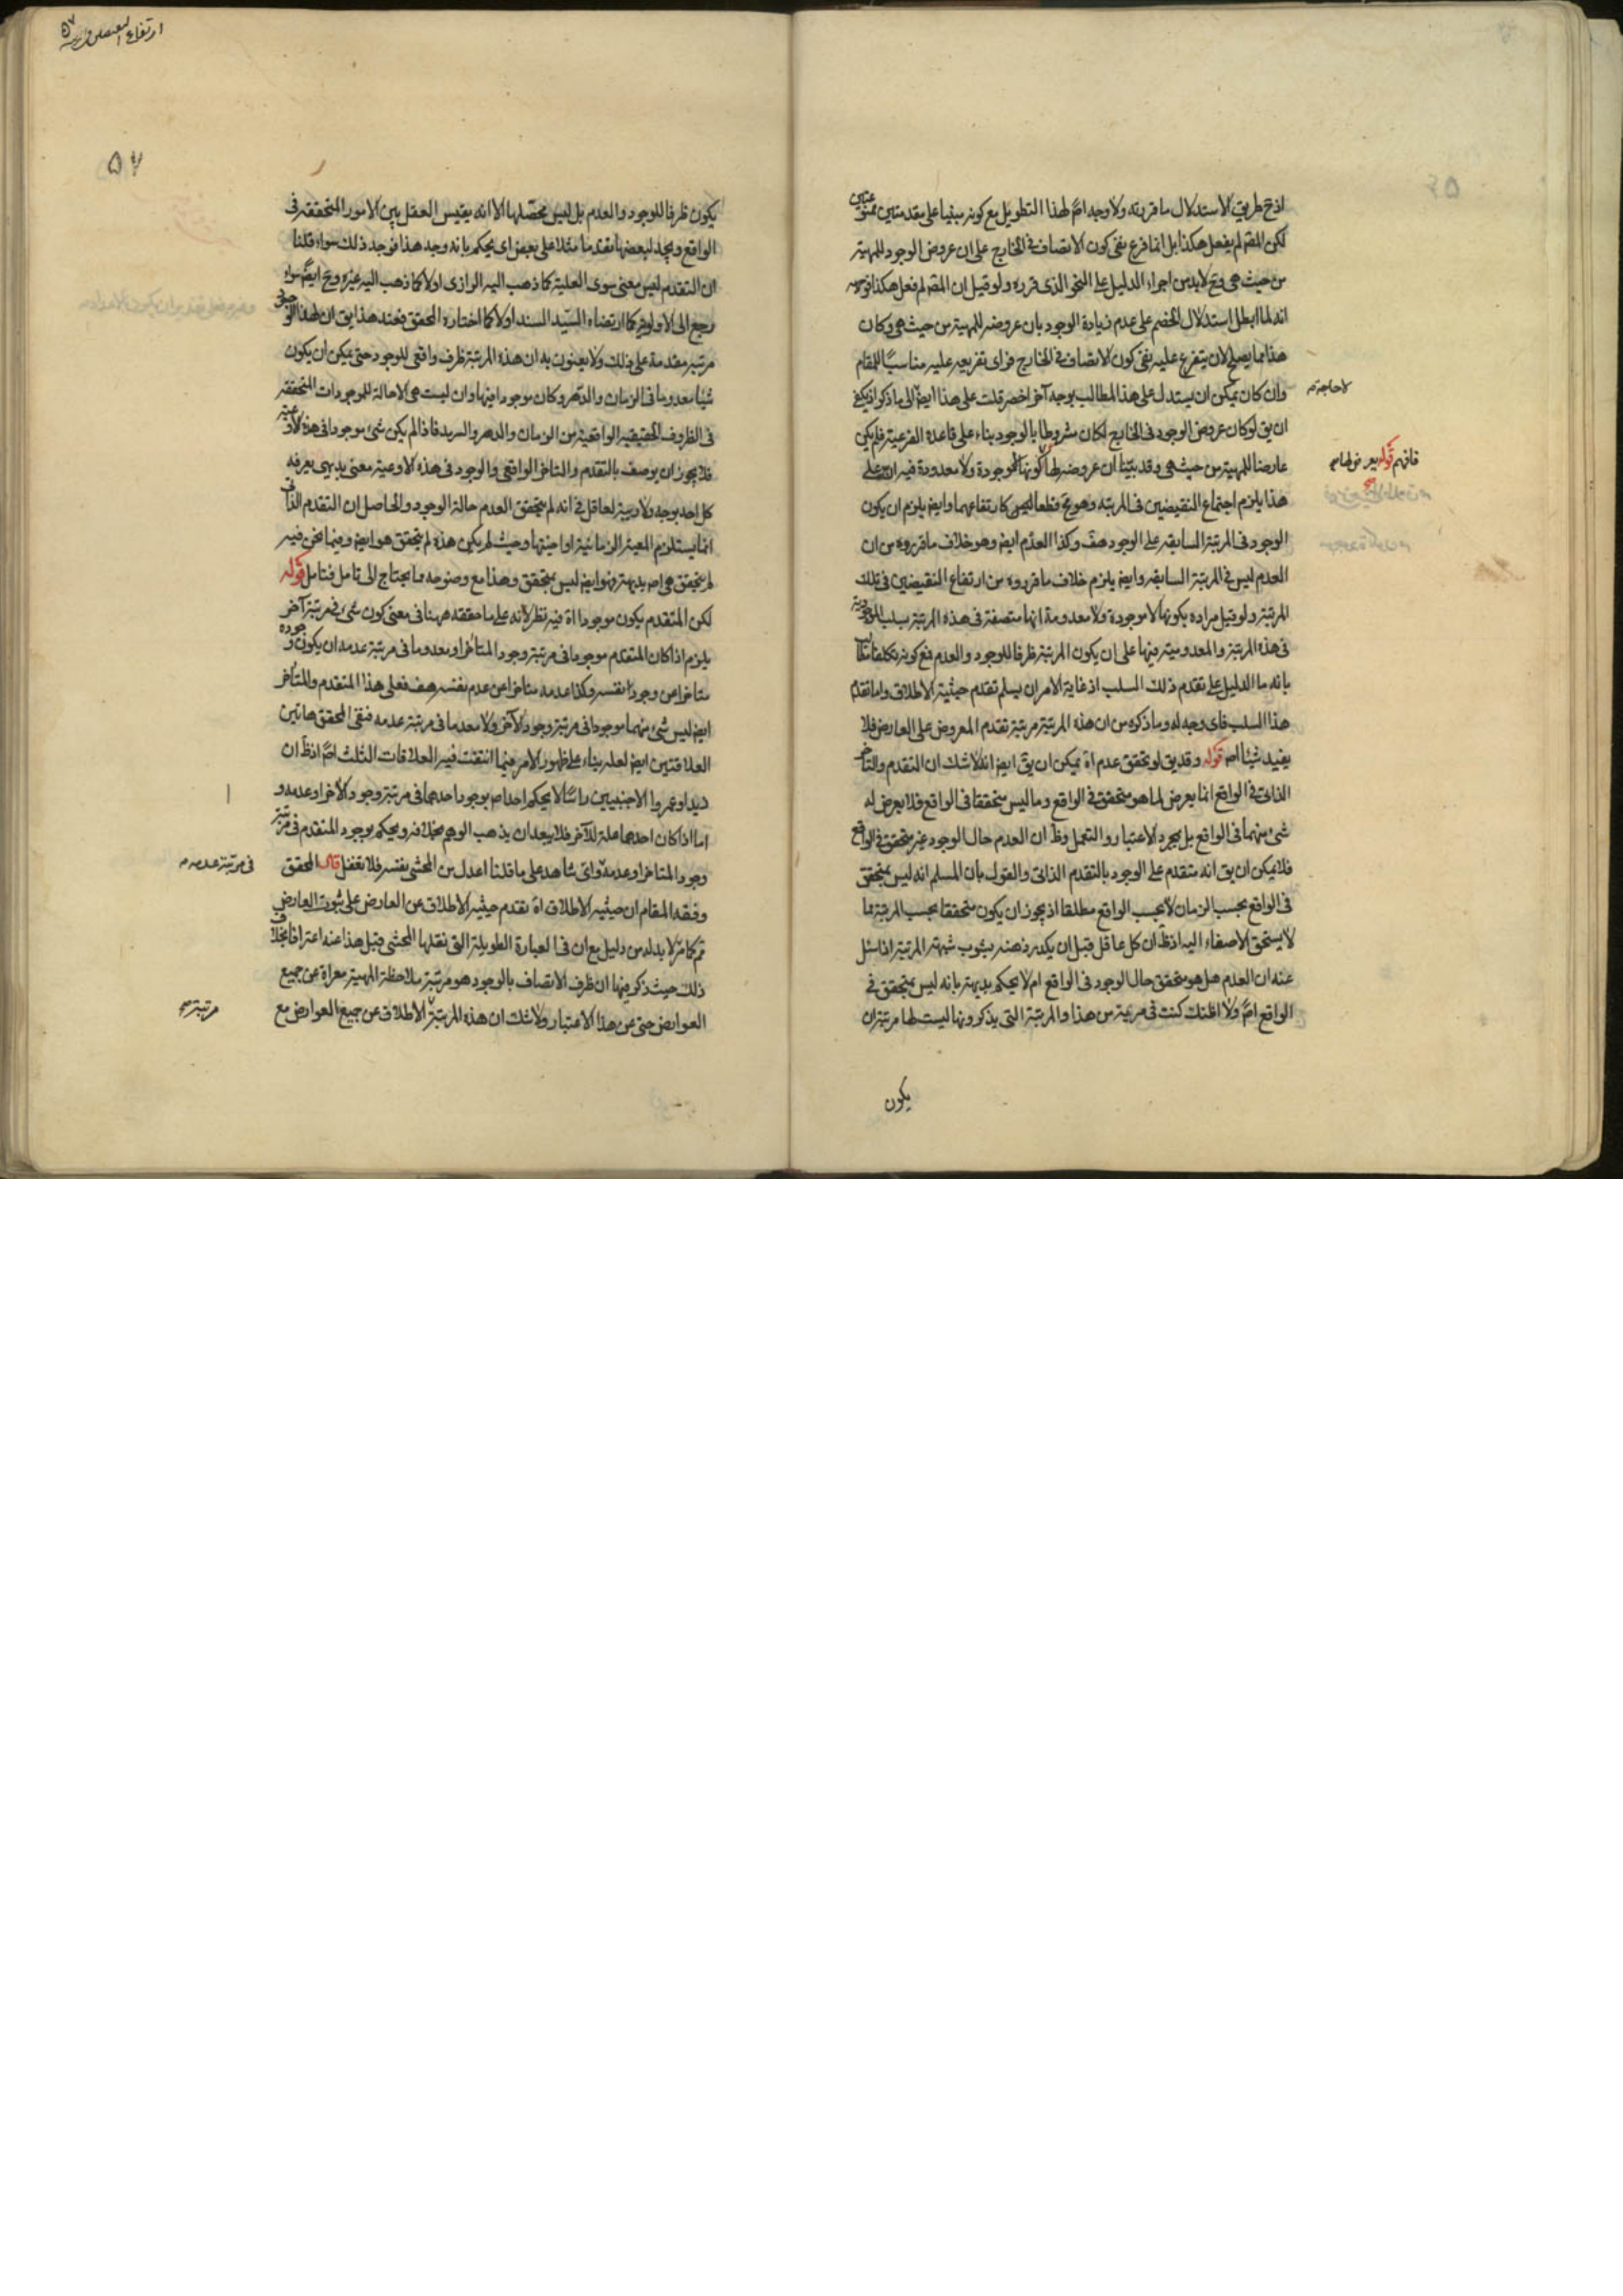 اذ ح طريق الاستدلال ما قررته ولا وجه اصً لهذا التطويل مع كونه مبنيا على مقدمتين
لكن المقم لم يفعل هكذا بل انما فرع نفى كون الاتصاف فى الخارج على ان عروض الوجود للمهية
من حيث هى وح لابد من اجراء الدليل على النحو الذى قرره ولو قيل ان المقم لم فعل هكذا
انه لما ابطل استدلال الخصم على عدم زيادة الوجود بان عروضه للمهية من حيث هى وكان
هذا مما يصلح لان يتفرع عليه نفى كون الاتصاف فى الخارج فراى تفريعه عليه مناسبًا للمقام
وان كان يمكن ان يستدل على هذا المطالب بوجه آخر اخصر قلت على هذا ايض الى ما ذكر اذ يكفى
لا حاجة
ان يق لو كان عروض الوجود فى الخارج لكان مشروطا بالوجود بناء على قاعدة الفرعية فلم يكن
عارضا للمهية من حيث هى وقد بيّنا ان عروضه لها كونها لا موجودة ولا معدودة فيه
فافهم قوله يعرض لها
هذا يلزم اجتماع النقيضين فى المرتبة وهو مح قطعا كارتفاعهما وايض يلزم ان يكون
الوجود فى المرتبة السابقه على الوجود هف وكذا العدم ايض وهو خلاف ما قرروه من ان
العدم ليس فى المرتبة السابقه وايض يلزم خلاف ما قرروه من ارتفاع النقيضين فى تلك
المرتبة ولو قيل مراده بكونها لا موجودة ولا معدومة انها متصفة فى هذه المرتبة بسلب الموجودية
فى هذه المرتبة والمعدومية فيها على ان يكون المرتبة ظرفا للوجود والعدم فمع كونه تكلفا
بانه ما الدليل على تقدم ذلك السلب اذ غاية الامر ان يسلم تقدم حيثية الاطلاق واما تقدم
هذا السلب فاى وجه له وما ذكره من ان هذه المرتبة مرتبة تقدم المعروض على العارض فلا
يفيد شيئا اصً قوله وقد يق لو تحقق عدم اه يمكن ان يق ايض انه لا شك ان التقدم والتاخر
الذاتى فى الواقع انما يعرض لما هو متحقق فى الواقع وما ليس متحققا فى الواقع فلا يعرض له
شئ منهما فى الواقع بل بمجرد الاعتبار والتعمل وظ ان العدم حال الوجود غير متحقق فى الواقع
فلا يمكن ان يق انه متقدم على الوجود بالتقدم الذاتى والقول بان المسلم انه ليس بمتحقق
فى الواقع بحسب الزمان لا بحسب الواقع مطلقا اذ يجوز ان يكون متحققا بحسب المرتبة مما
لا يستحق الاصغاء اليه اذ ظ ان كل عاقل قبل ان يكدر ذهنه بشوب شبهة المرتبة اذا سئل
عنه ان العدم هل هو متحقق حال الوجود فى الواقع ام لا يحكم بديهة بانه ليس بمتحقق فى
الواقع اصً ولا اظنك كنت فى مرية من هذا والمرتبة التى يذكرونها ليست لها مرتبة ان
يكون
ارتفاع النقيضين
٥٧
يكون ظرفا للوجود والعدم بل ليس محصّلها الا انه يقيس العقل بين الامور المتحققه فى
الواقع ويجد لبعضها تقدما مثلا على بعض اى يحكم بانه وجد هذا فوجد ذلك سواء قلنا
ان التقدم ليس معنى سوى العلية كما ذهب اليه الرازى او لا كما ذهب اليه غيره وح ايضً سواء
رجع الى الاولوية كما ارتضاه السيّد السند او لا كما اختاره المحقق فعند هذا يق ان لهذا الوجود
مرتبه مقدمة على ذلك ولا يعنون به ان هذه المرتبة ظرف واقعى للوجود حتى يمكن ان يكون
شيئا معدوما فى الزمان والدهر وكان موجودا فيها وان ليست هى الا حالة للموجودات المتحققه
فى الظروف الحقيقيه الواقعية من الزمان والدهر والسرمد فاذا لم يكن شئ موجودا فى هذه الاوعية
فلا يجوز ان يوصف بالتقدم والتاخر الواقعى والوجود فى هذه الاوعية معنى بديهى يعرفه
كل احد بوجه ولا ريبة لعاقل فى انه لم يتحقق العدم حالة الوجود والحاصل ان التقدم الذاتى
انما يستلزم المعية الزمانية او ما فيها وحيث لم يكن هذه لم يتحقق هو ايض وفيما نحن فيه
لم يتحقق هى اصً بديهة فهو ايض ليس بمتحقق وهذا مع وضوحه مما يحتاج الى تامل فتامل قوله
لكن المتقدم يكون موجودا اه فيه نظر لانه على ما حققه ههنا فى معنى كون شئ فى مرتبة آخر
يلزم اذا كان المتقدم موجودا فى مرتبة وجود المتاخر او معدوما فى مرتبة عدمه ان يكون وجوده
متاخرا من وجود نفسه وكذا عدمه متاخرا عن عدم نفسه هف فعلى هذا المتقدم والمتاخر
ايض ليس شئ منهما موجودا فى مرتبة وجود الآخر ولا معدما فى مرتبة عدمه فنفى المحقق هاتين
العلاقتين ايض لعله بناء على ظهور الامر فيما انتفت فيه العلاقات الثلث اصً اذ ظ ان
زيدا وعمروا الاجنبيين راسًا لا يحكم احد اصً بوجود احدهما فى مرتبة وجود الآخر او عدمه و
اما اذا كان احدهما علة للآخر فلا يبعد ان يذهب الوهم بخلافه ويحكم بوجود المتقدم فى مرتبة
وجود المتاخر او عدمه واى شاهد على ما قلنا اعدل من المحشى نفسه فلا تغفل قال المحقق
فى مرتبة عدمه
وفقه المقام ان حيثيه الاطلاق اه تقدم حيثيه الاطلاق عن العارض على ثبوت العارض
ثم كما مر لا بد له من دليل مع ان فى العبارة الطويلة التى نقلها المحشى قبل هذا عنه اعترافا بخلاف
ذلك حيث ذكر فيها ان ظرف الاتصاف بالوجود هو مرتبة ملاحظة المهية معراة عن جميع
العوارض حتى عن هذا الاعتبار ولا شك ان هذه المرتبة الاطلاق عن جميع العوارض مع
مرتبة